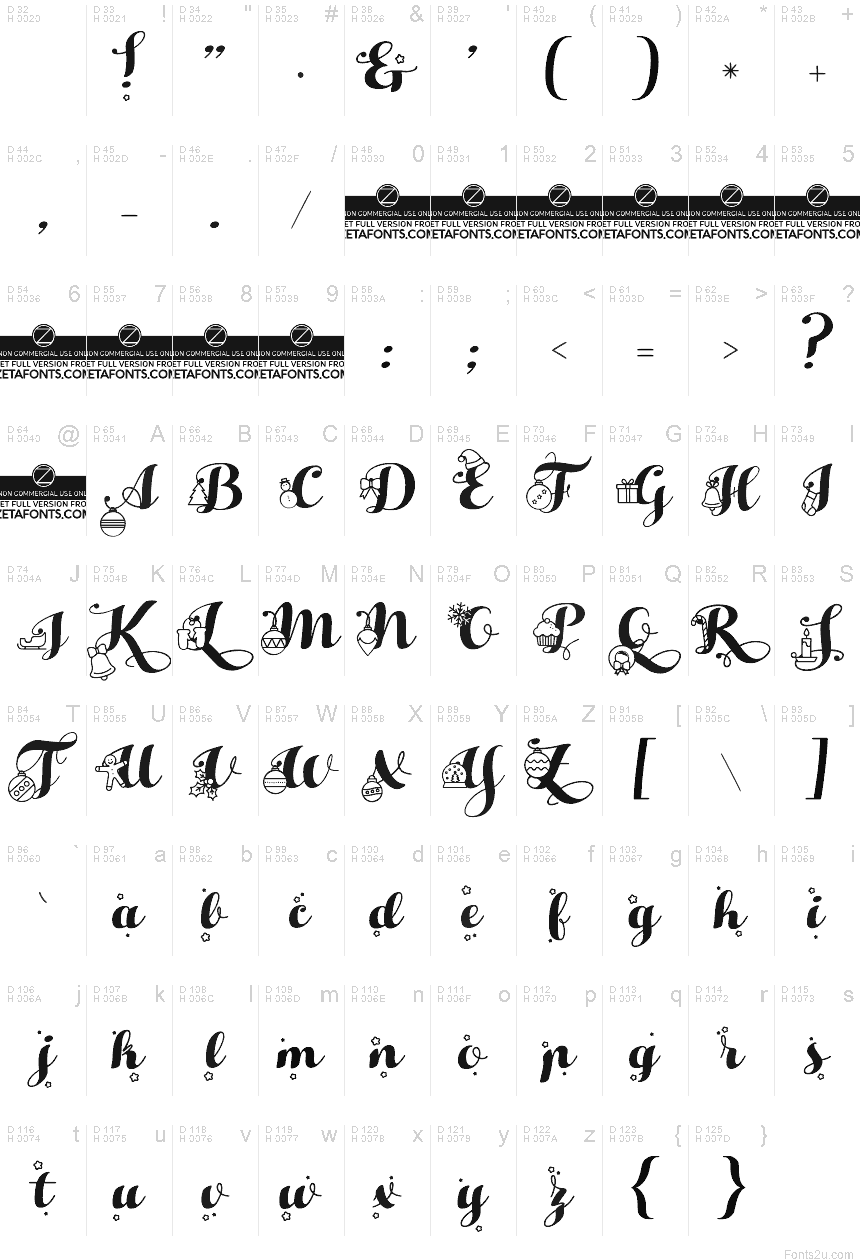 D 32 D 33 ! D 34 " D 35 # D 38 & D 39 ' D 40 ( D 41 ) D 42 * D 43 +
H 0020 H 0021 H 0022 H 0023 H 0026 H 0027 H 0028 H 0029 H 002A H 002B
! " · & ' ( ) * +
D 44 , D 45 - D 46 . D 47 / D 48 0 D 49 1 D 50 2 D 51 3 D 52 4 D 53 5
H 002C H 002D H 002E H 002F H 0030 H 0031 H 0032 H 0033 H 0034 H 0035
, - . / Z Z Z Z Z Z
NON COMMERCIAL USE ONL NON COMMERCIAL USE ONL NON COMMERCIAL USE ONL NON COMMERCIAL USE ONL NON COMMERCIAL USE ONL NON COMMERCIAL USE ONL
ET FULL VERSION FRO ET FULL VERSION FRO ET FULL VERSION FRO ET FULL VERSION FRO ET FULL VERSION FRO ET FULL VERSION FRO
ZETAFONTS.COM ZETAFONTS.COM ZETAFONTS.COM ZETAFONTS.COM ZETAFONTS.COM ZETAFONTS.COM
D 54 6 D 55 7 D 56 8 D 57 9 D 58 : D 59 ; D 60 < D 61 = D 62 > D 63 ?
H 0036 H 0037 H 0038 H 0039 H 003A H 003B H 003C H 003D H 003E H 003F
Z Z Z Z : ; < = > ?
NON COMMERCIAL USE ONL NON COMMERCIAL USE ONL NON COMMERCIAL USE ONL NON COMMERCIAL USE ONL
ET FULL VERSION FRO ET FULL VERSION FRO ET FULL VERSION FRO ET FULL VERSION FRO
ZETAFONTS.COM ZETAFONTS.COM ZETAFONTS.COM ZETAFONTS.COM
D 64 @ D 65 A D 66 B D 67 C D 68 D D 69 E D 70 F D 71 G D 72 H D 73 I
H 0040 H 0041 H 0042 H 0043 H 0044 H 0045 H 0046 H 0047 H 0048 H 0049
Z A B C D E F G H I
NON COMMERCIAL USE ONL
ET FULL VERSION FRO
ZETAFONTS.COM
D 74 J D 75 K D 76 L D 77 M D 78 N D 79 O D 80 P D 81 Q D 82 R D 83 S
H 004A H 004B H 004C H 004D H 004E H 004F H 0050 H 0051 H 0052 H 0053
J K L M N O P Q R S
D 84 T D 85 U D 86 V D 87 W D 88 X D 89 Y D 90 Z D 91 [ D 92 \ D 93 ]
H 0054 H 0055 H 0056 H 0057 H 0058 H 0059 H 005A H 005B H 005C H 005D
T U V W X Y Z [ \ ]
D 96 ` D 97 a D 98 b D 99 c D 100 d D 101 e D 102 f D 103 g D 104 h D 105 i
H 0060 H 0061 H 0062 H 0063 H 0064 H 0065 H 0066 H 0067 H 0068 H 0069
` a b c d e f g h i
D 106 j D 107 k D 108 l D 109 m D 110 n D 111 o D 112 p D 113 q D 114 r D 115 s
H 006A H 006B H 006C H 006D H 006E H 006F H 0070 H 0071 H 0072 H 0073
j k l m n o p q r s
D 116 t D 117 u D 118 v D 119 w D 120 x D 121 y D 122 z D 123 { D 125 }
H 0074 H 0075 H 0076 H 0077 H 0078 H 0079 H 007A H 007B H 007D
t u v w x y z { }
Fonts2u.com